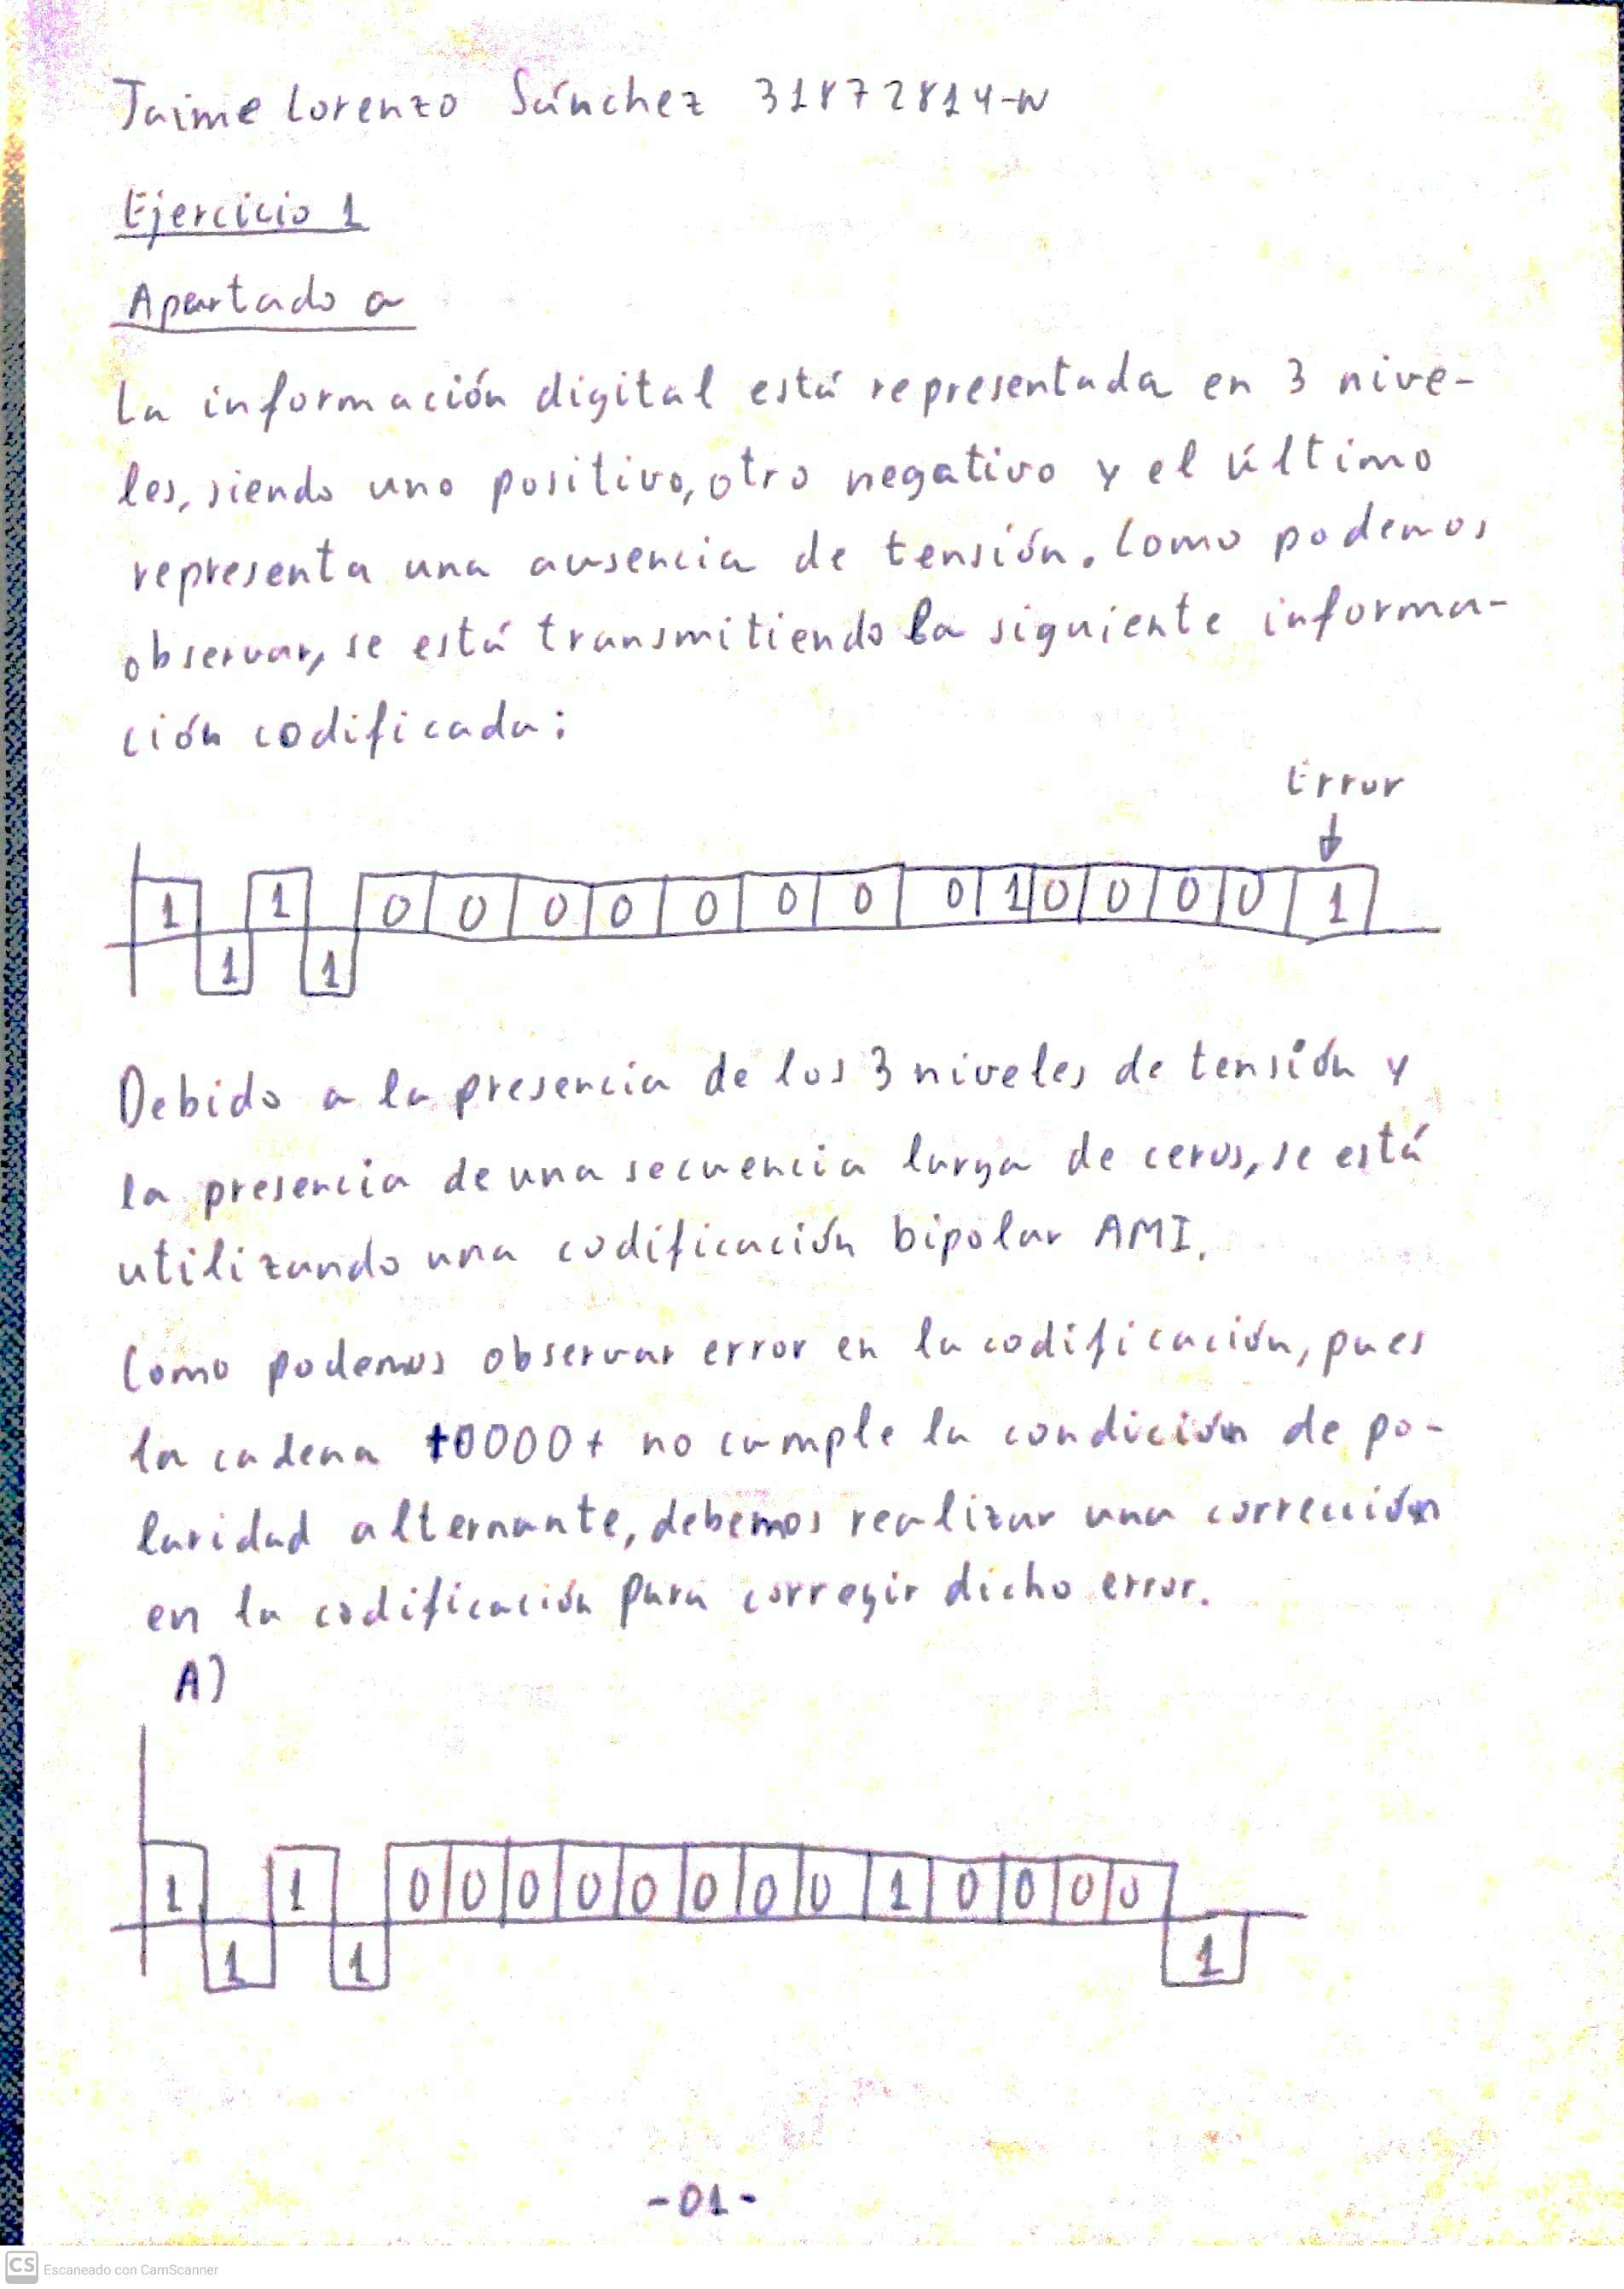 Jaime Lorenzo Sánchez 31872814-N
Ejercicio 1
Apartado a
La información digital está representada en 3 nive-
les, siendo uno positivo, otro negativo y el último
representa una ausencia de tensión. Como podemos
observar, se está transmitiendo la siguiente informa-
ción codificada:
Error
1 1 0 0 0 0 0 0 0 0 1 0 0 0 0 1
1 1
Debido a la presencia de los 3 niveles de tensión y
la presencia de una secuencia larga de ceros, se está
utilizando una codificación bipolar AMI.
Como podemos observar error en la codificación, pues
la cadena +0000+ no cumple la condición de po-
laridad alternante, debemos realizar una corrección
en la codificación para corregir dicho error.
A)
1 1 0 0 0 0 0 0 0 0 1 0 0 0 0
1 1 1
-01-
CS Escaneado con CamScanner